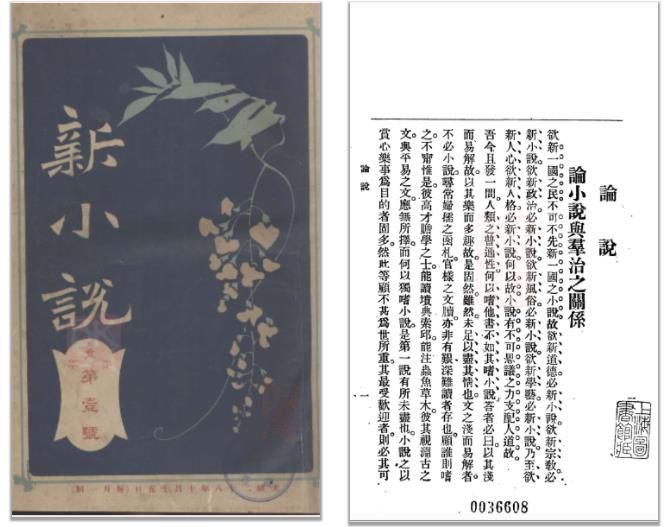 新小説
第壹號
八年十月十五日
論說
論小說與羣治之關係
欲新一國之民不可不先新一國之小說故欲新道德必新小說欲新宗敎必
新小說欲新政治必新小說欲新風俗必新小說欲新學藝必新小說乃至欲
新人心欲新人格必新小說何以故小說有不可思議之力支配人道故
吾今且發一問人類之普通性何以嗜他書不如其嗜小說答者必曰以其淺
而易解故以其樂而多趣故是固然雖然未足以盡其情也文之淺而易解者
不必小說尋常婦孺之函札官樣之文牘亦非有艱深難讀者存也顧誰則嗜
之不甯惟是彼高才贍學之士能讀墳典索邱能注蟲魚草木彼其視淵古之
文與平易之文應無所擇而何以獨嗜小說是第一說有所未盡也小說之以
賞心樂事爲目的者固多然此等顧不甚爲世所重其最受歡迎者則必其可
論說
一
上海圖書館藏
0036608